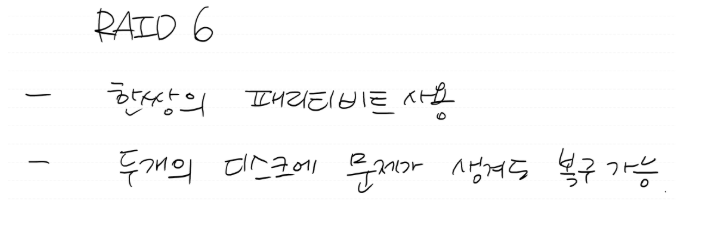 RAID 6
- 한쌍의 패리티비트 사용
- 두개의 디스크에 문제가 생겨도 복구 가능.